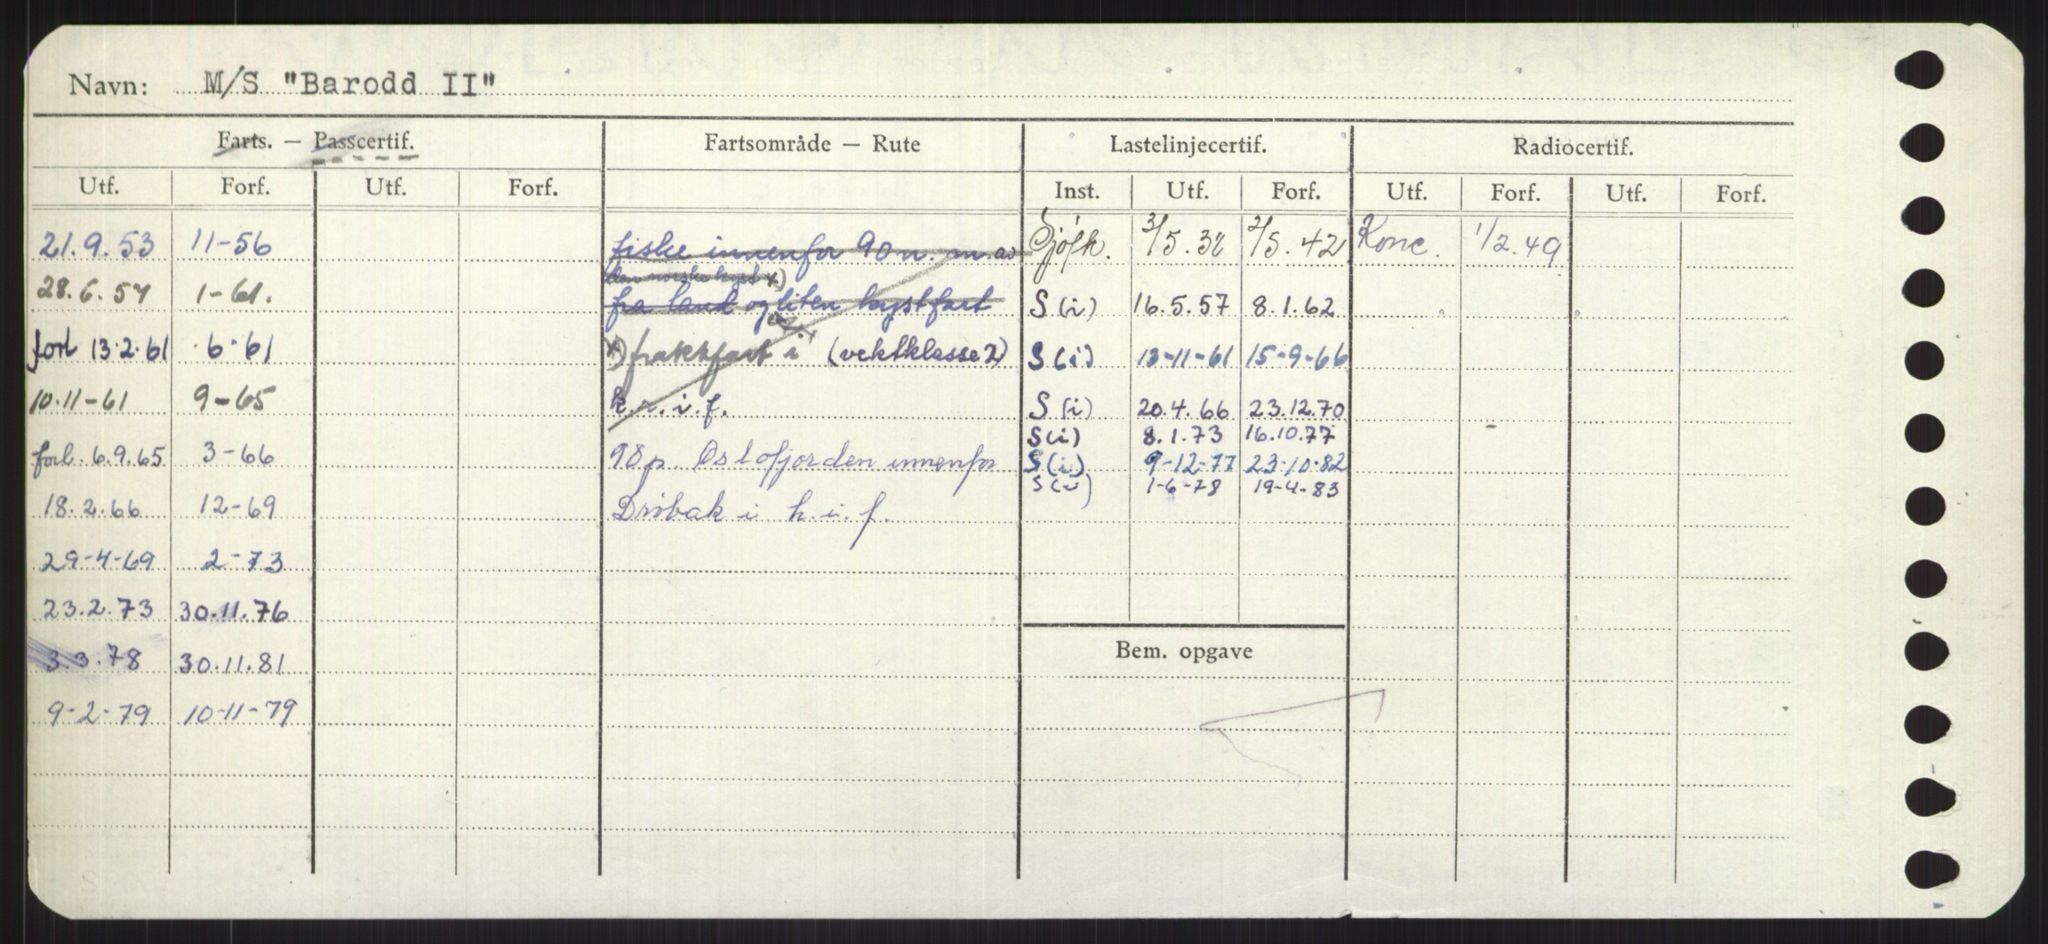 Navn: M/S "Barodd II"
Farts. — Passcertif. Fartsområde — Rute Lastelinjecertif. Radiocertif.
Utf. Forf. Utf. Forf. Inst. Utf. Forf. Utf. Forf. Utf. Forf.
21.9.53 11-56 fiske innenfor 90 n. m. av Sjøfk. 3/5.38 2/5.42 Konc. 1/2.49
den norske kyst x)
28.6.57 1-61. fra land og liten kystfart S (i) 16.5.57 8.1.62
forl 13.2.61 6.61 x) fraktfart i (vektklasse 2) S (i) 13-11-61 15-9-66
10.11-61 9-65 k. r. i. f. S (i) 20.4.66 23.12.70
S (i) 8.1.73 16.10.77
forl. 6.9.65 3-66 98 p. Oslofjorden innenfor S (i) 9-12-77 23-10-82
S (i) 1-6-78 19-4-83
18.2.66 12-69 Drøbak i h. i. f.
29-4-69 2-73
23.2.73 30.11.76
3.3.78 30.11.81
Bem. opgave
9-2-79 10-11-79